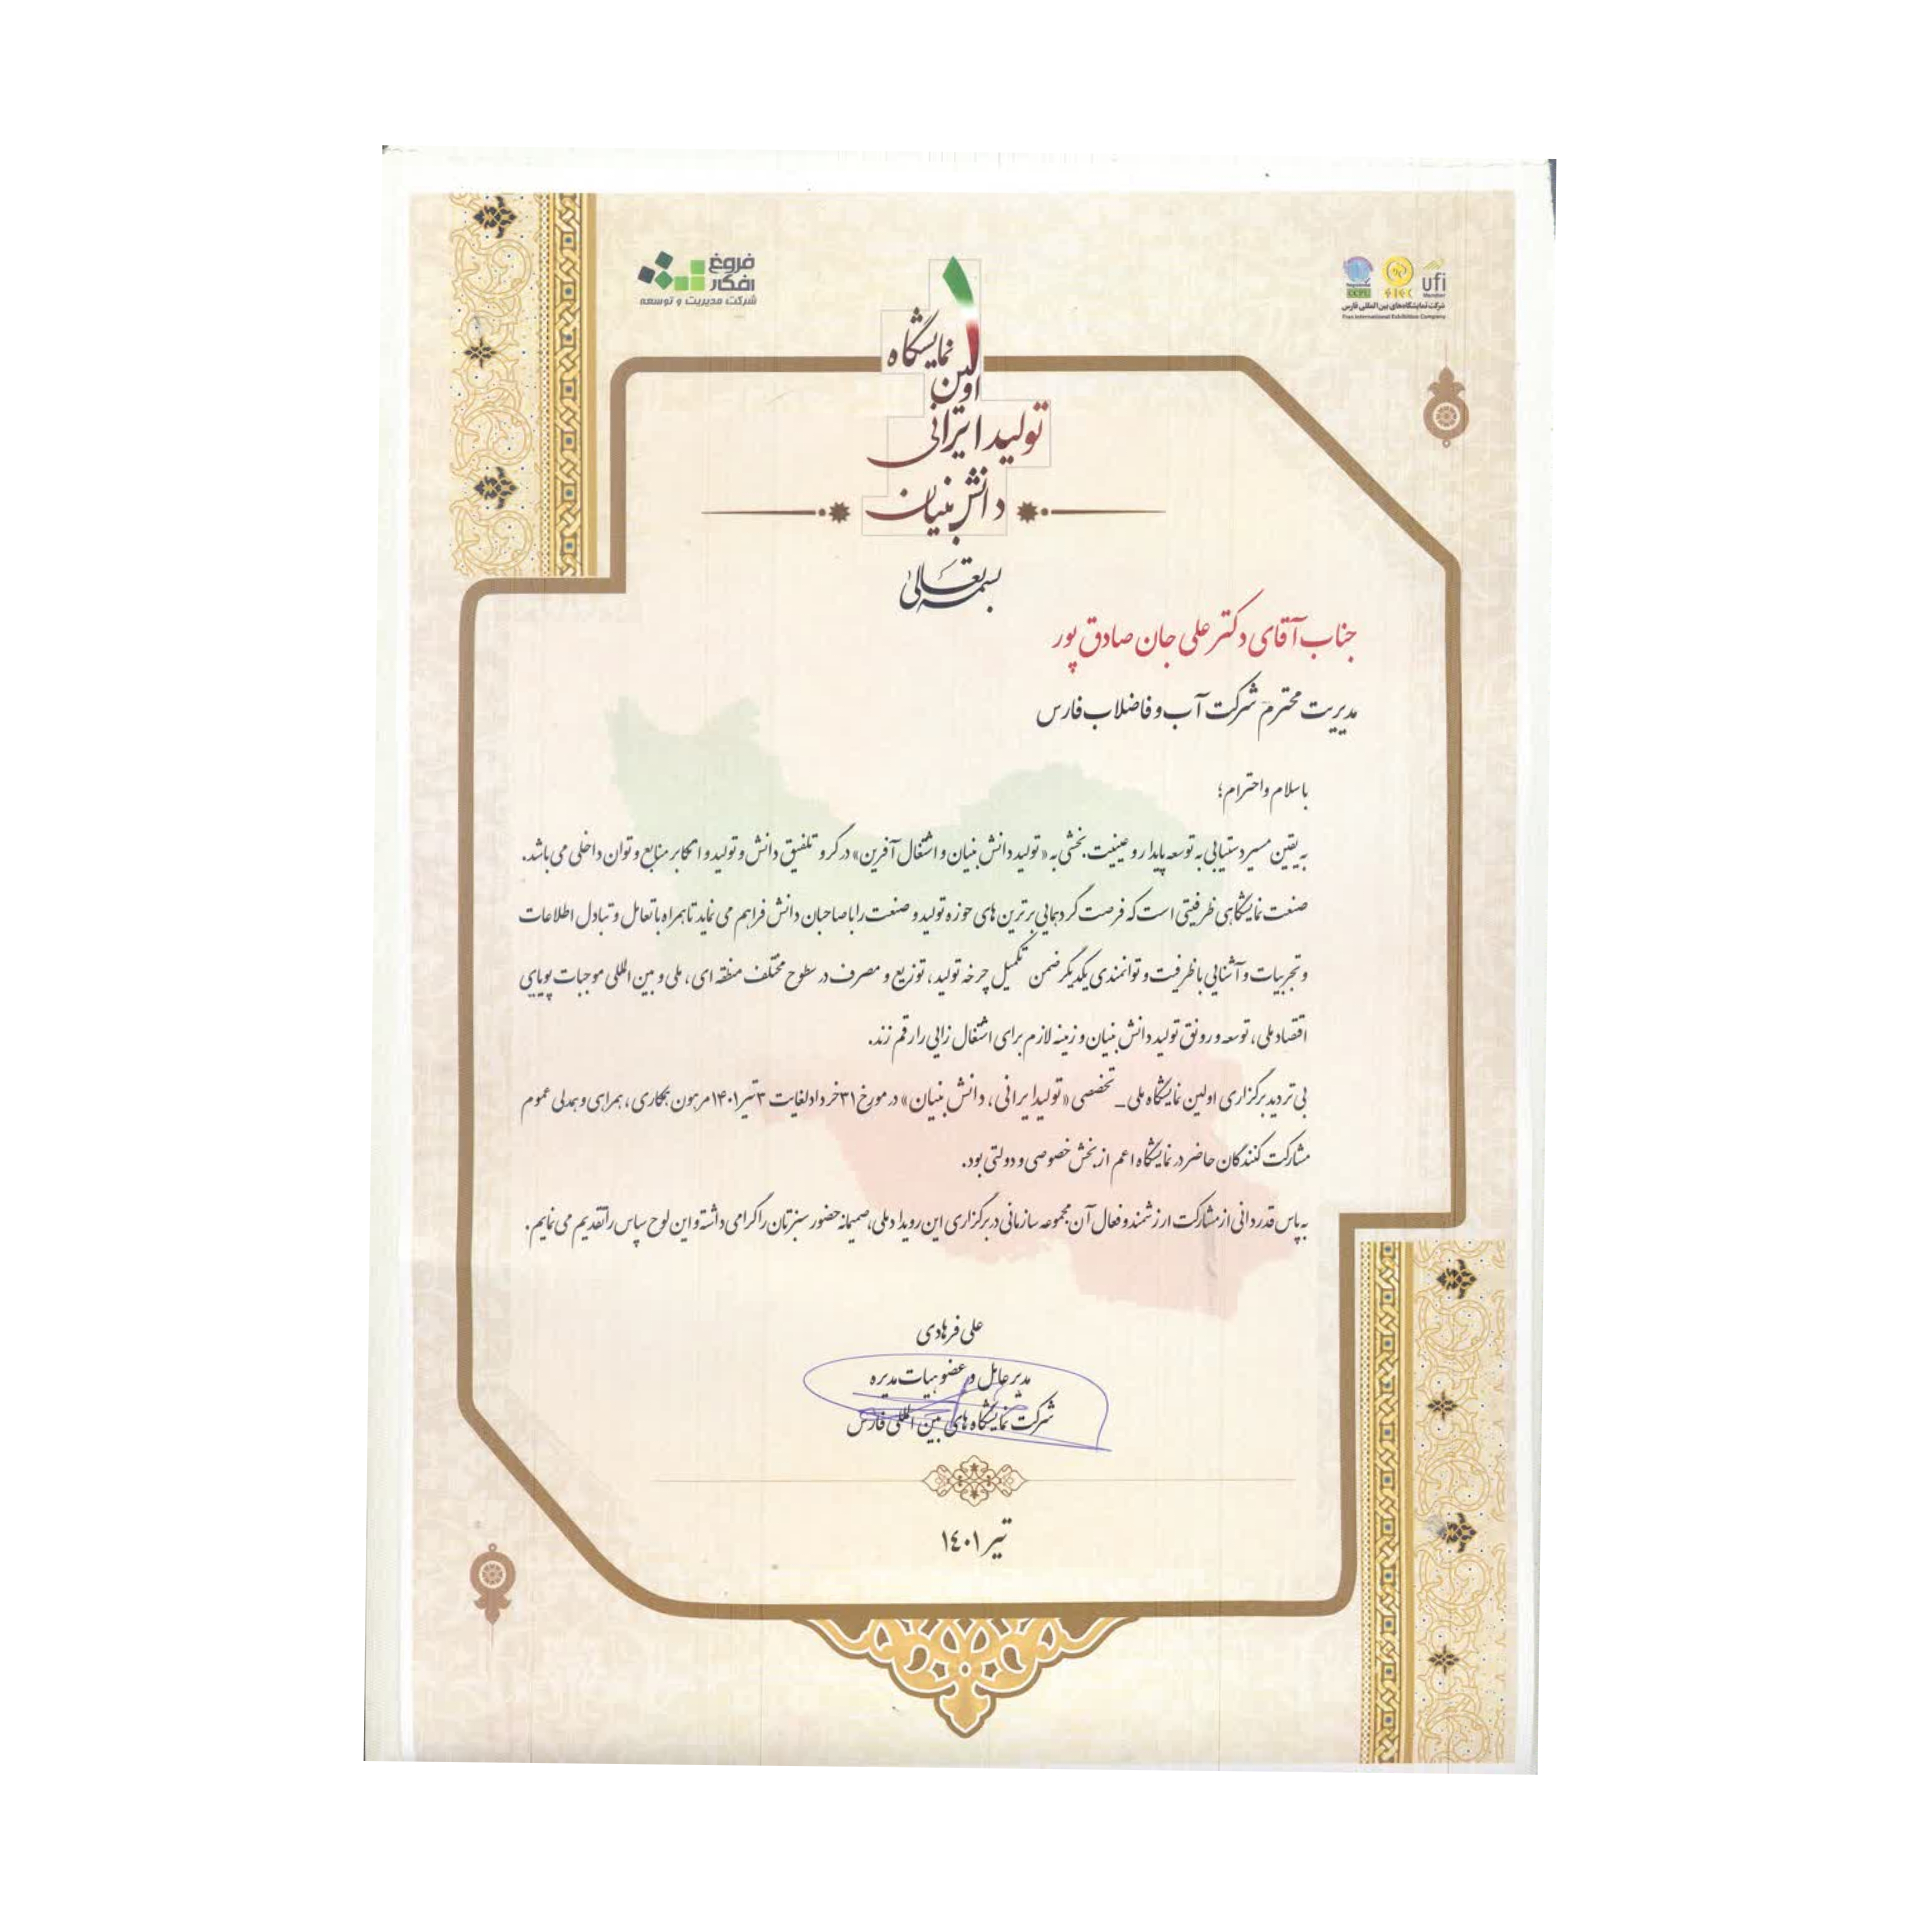 فروغ
افکار
شرکت مدیریت و توسعه
ufi
Member
شرکت نمایشگاه‌های بین‌المللی فارس
Fars International Exhibition Company
نمایشگاه
اولین
تولید ایرانی
دانش بنیان
بسمه تعالی
جناب آقای دکتر علی جان صادق پور
مدیریت محترم شرکت آب و فاضلاب فارس
با سلام و احترام؛
به یقین مسیر دستیابی به توسعه پایدار و عینیت بخشی به «تولید دانش بنیان و اشتغال آفرین» در گرو تلفیق دانش و تولید و اتکا بر منابع و توان داخلی می باشد.
صنعت نمایشگاهی ظرفیتی است که فرصت گردهمایی برترین های حوزه تولید و صنعت را با صاحبان دانش فراهم می نماید تا همراه با تعامل و تبادل اطلاعات
و تجربیات و آشنایی با ظرفیت و توانمندی یکدیگر ضمن تکمیل چرخه تولید، توزیع و مصرف در سطوح مختلف منطقه ای، ملی و بین المللی موجبات پویایی
اقتصاد ملی، توسعه و رونق تولید دانش بنیان و زمینه لازم برای اشتغال زایی را رقم زند.
بی تردید برگزاری اولین نمایشگاه ملی ـ تخصصی «تولید ایرانی، دانش بنیان» در مورخ ۳۱ خرداد لغایت ۳ تیر ۱۴۰۱ مرهون همکاری، همراهی و همدلی عموم
مشارکت کنندگان حاضر در نمایشگاه اعم از بخش خصوصی و دولتی بود.
به پاس قدردانی از مشارکت ارزشمند و فعال آن مجموعه سازمانی در برگزاری این رویداد ملی، صمیمانه حضور سبزتان را گرامی داشته و این لوح سپاس را تقدیم می نمایم.
علی فرهادی
مدیرعامل و عضو هیات مدیره
شرکت نمایشگاه های بین المللی فارس
تیر ۱۴۰۱